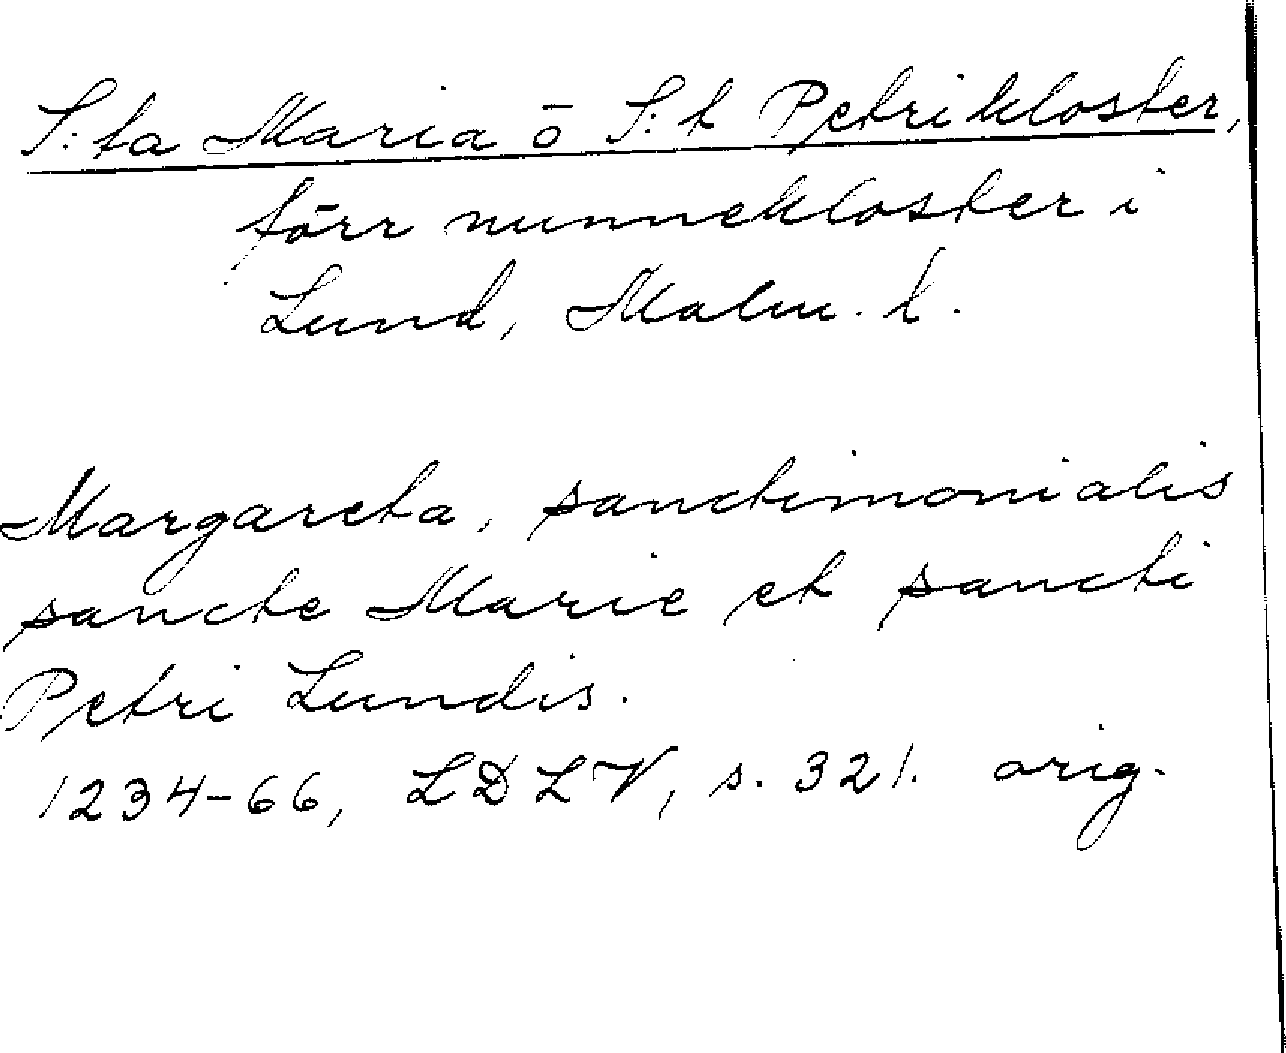 S:ta Maria o S:t Petri kloster,
förr nunnekloster i
Lund, Malm. l.
Margareta, sanctimonialis
sancte Marie et sancti
Petri Lundis.
1234-66, LDLV, s. 321. orig.